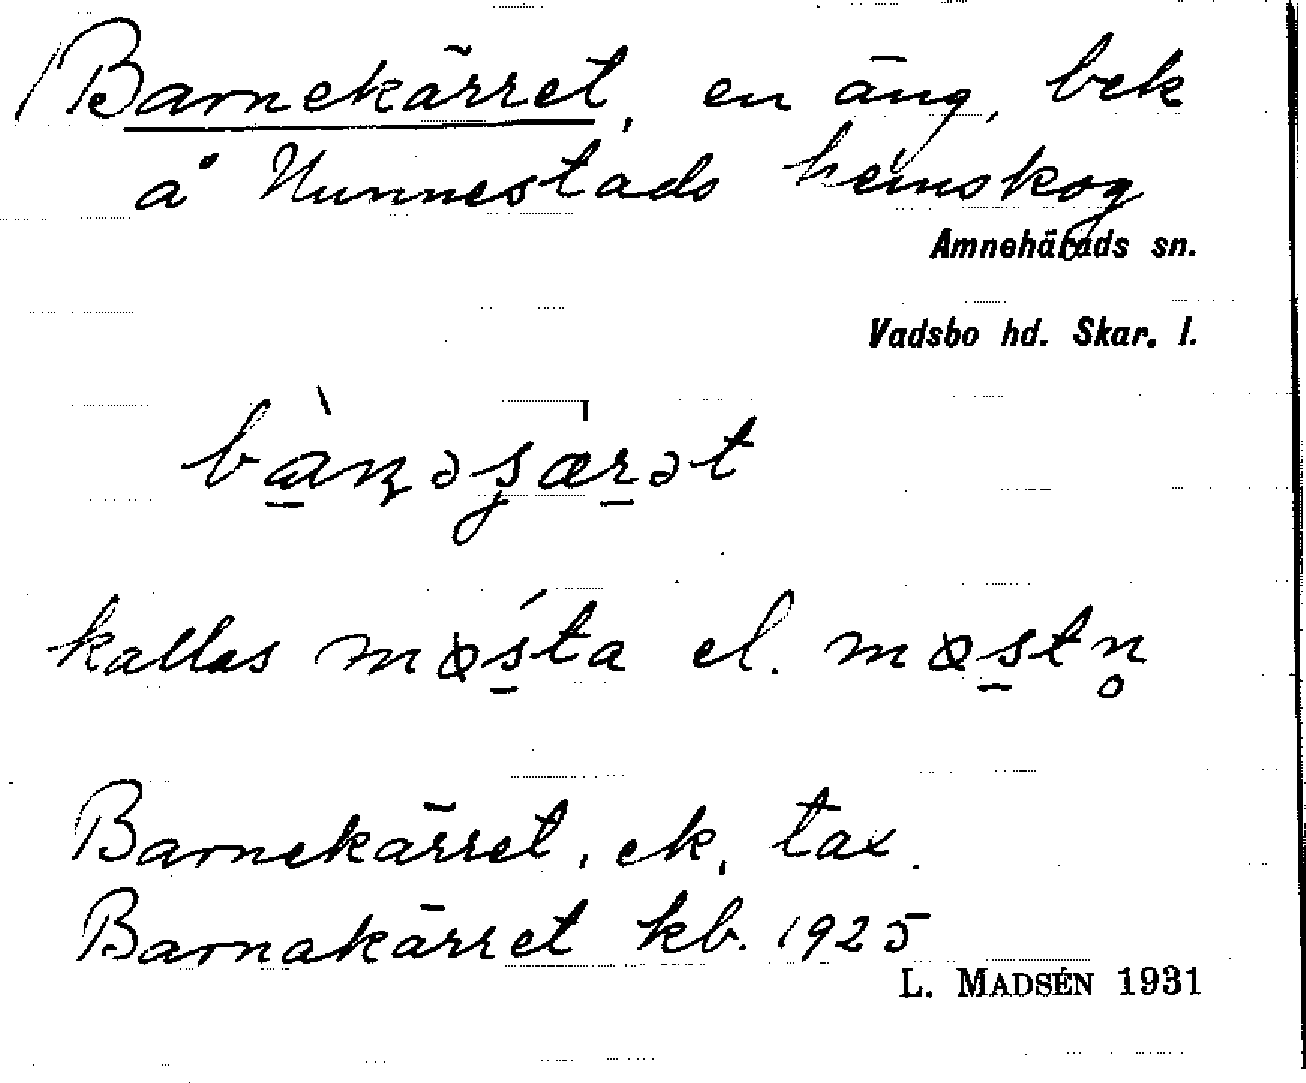 Barnekärret, en äng, bek
å Nunnestads hemskog
Amnehärads sn.
Vadsbo hd. Skar. l.
kallas møsta el. møstn̥
Barnekärret, ek, tax.
Barnakärret kb. 1925
L. MADSÉN 1931